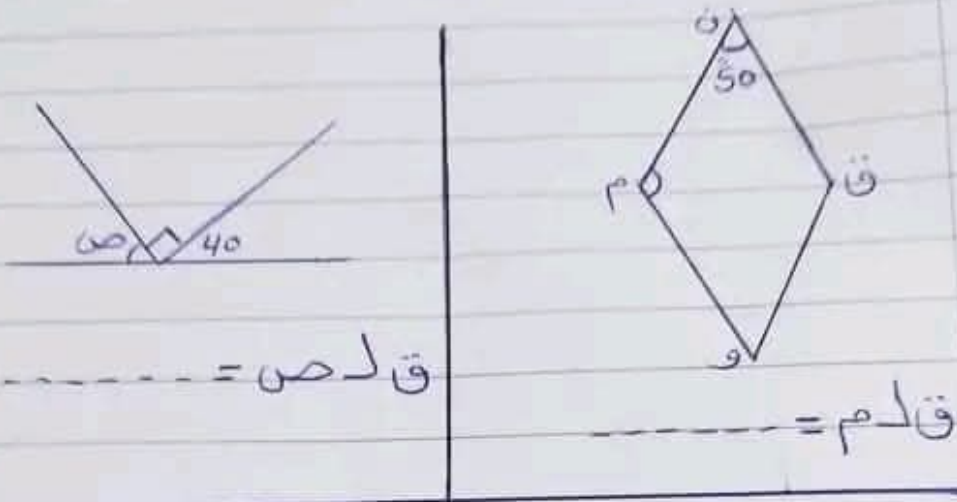 ن
50°
م
ق
و
ق ∟ م = -------
ص
40
ق ∟ ص = -------